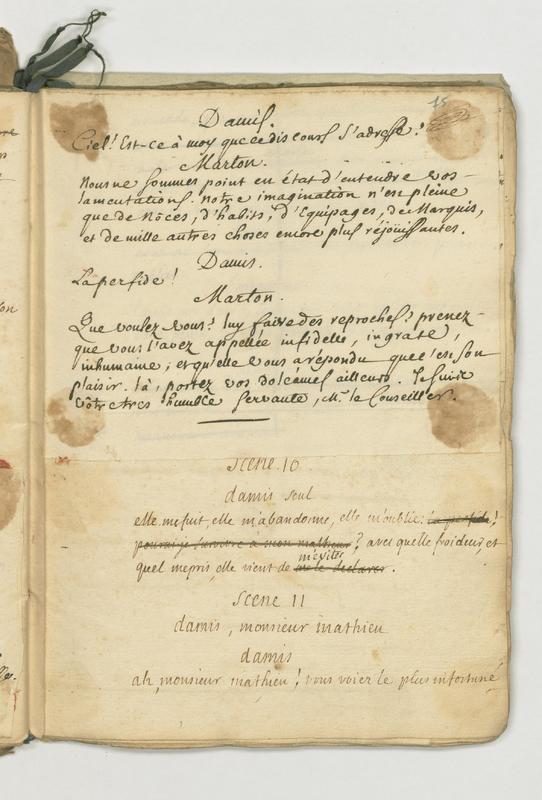 75
Damis.
Ciel! Est-ce à moy que ce discours s'adresse?
Marton.
Nous ne sommes point en état d'entendre vos
lamentations. notre imagination n'est pleine
que de Nôces, d'habits, d'Equipages, de Marquis,
et de mille autres choses encore plus réjoüissantes.
Damis.
La perfide!
Marton.
Que voulez vous? luy faire des reproches? prenez-
que vous l'avez appellée infidelle, ingrate,
inhumaine; et qu'elle vous a répondu que c'est son
plaisir. là, portez vos doléances ailleurs. Je suis
vôtre tres humble servante, Mr. le Conseiller.
Scene. 10
damis seul
elle me fuit, elle m'abandonne, elle m'oublie. la perfide!
pourrai je survivre à mon malheur? avec quelle froideur, et
m'eviter
quel mepris, elle vient de me le declarer.
Scene 11
damis, monsieur mathieu
damis
ah, monsieur mathieu! vous voiez le plus infortuné